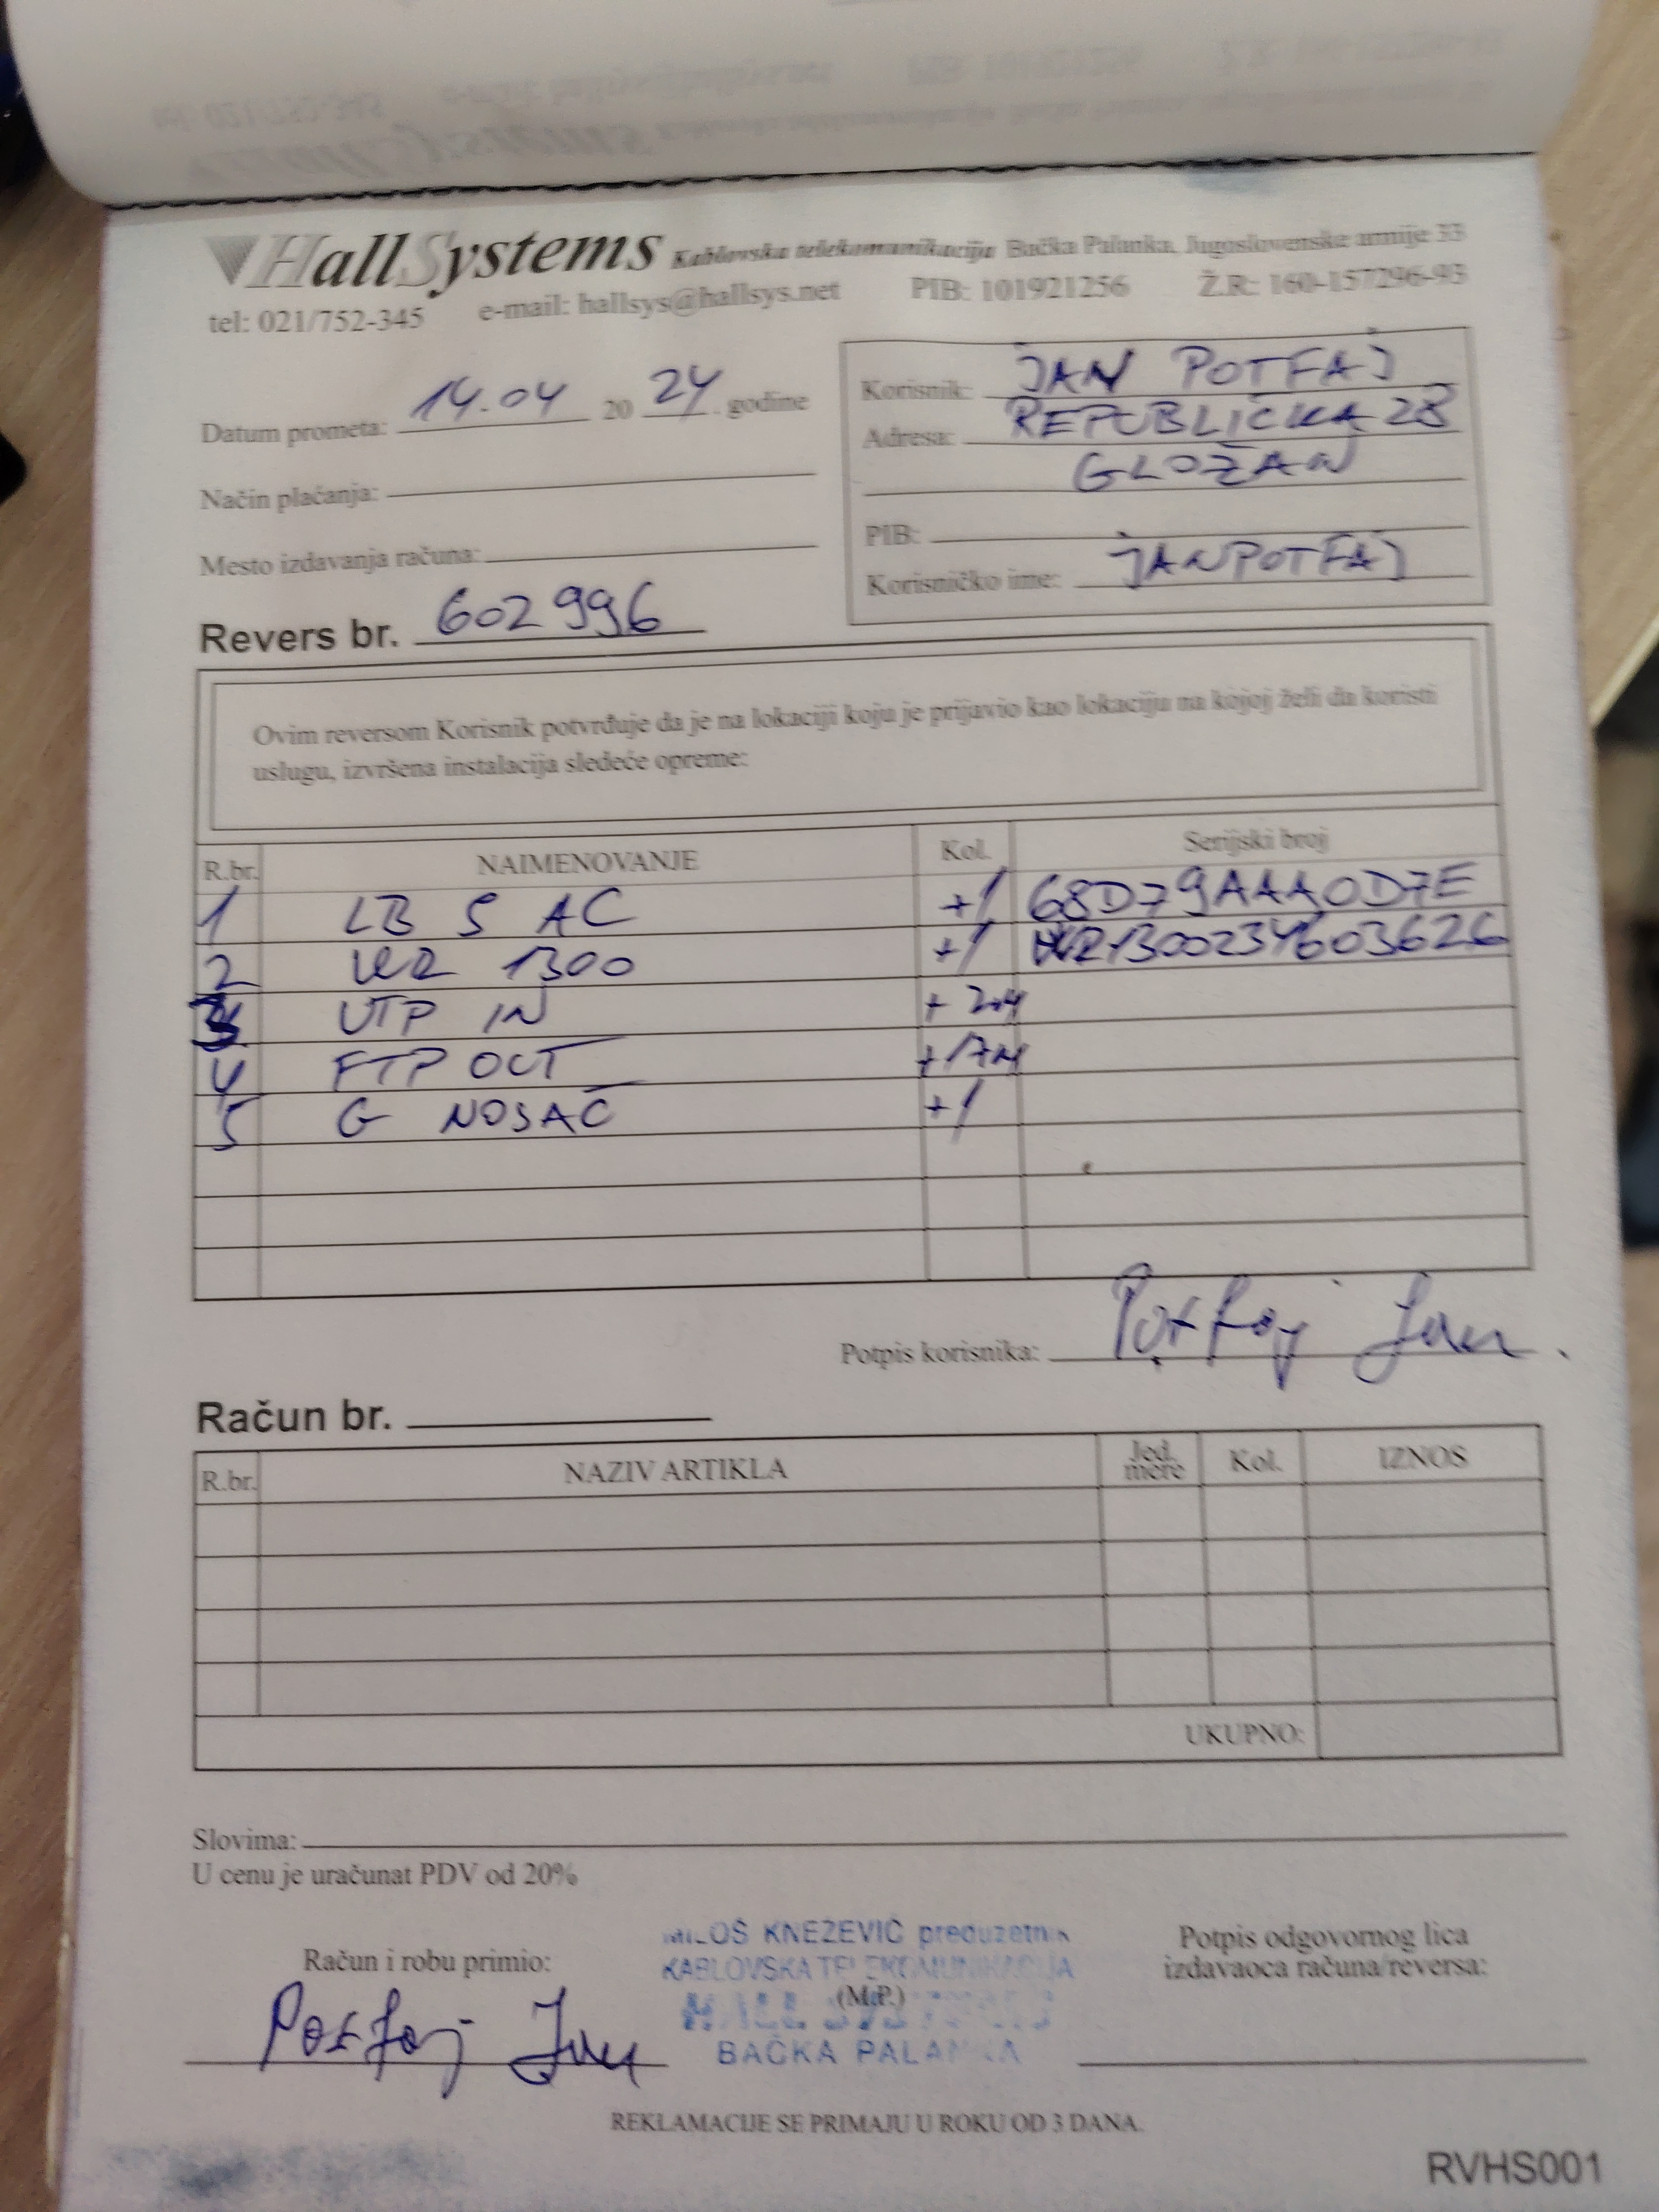 HallSystems Kablovska telekomunikacija Bačka Palanka, Jugoslovenske armije 33
tel: 021/752-345 e-mail: hallsys@hallsys.net PIB: 101921256 Ž.R: 160-157296-93
Datum prometa: 14.04 20 24 godine
Način plaćanja:
Mesto izdavanja računa:
Korisnik: JAN POTFAJ
Adresa: REPUBLIČKA 28
GLOŽAN
PIB:
Korisničko ime: JANPOTFAJ
Revers br. 602996
Ovim reversom Korisnik potvrđuje da je na lokaciji koju je prijavio kao lokaciju na kojoj želi da koristi
uslugu, izvršena instalacija sledeće opreme:
R.br. NAIMENOVANJE Kol. Serijski broj
1 LB 5 AC +1 68D79AAA0D7E
2 WR 1300 +1 WR1300234603626
3 UTP IN +
4 FTP OUT +17M
5 G NOSAČ +1
Potpis korisnika: Potfaj Jan
Račun br.
R.br. NAZIV ARTIKLA Jed. mere Kol. IZNOS
UKUPNO:
Slovima:
U cenu je uračunat PDV od 20%
Račun i robu primio:
Potfaj Jan
MILOŠ KNEŽEVIĆ preduzetnik
KABLOVSKA TELEKOMUNIKACIJA
(M.P.)
HALL SYSTEMS
BAČKA PALANKA
Potpis odgovornog lica
izdavaoca računa/reversa:
REKLAMACIJE SE PRIMAJU U ROKU OD 3 DANA.
RVHS001